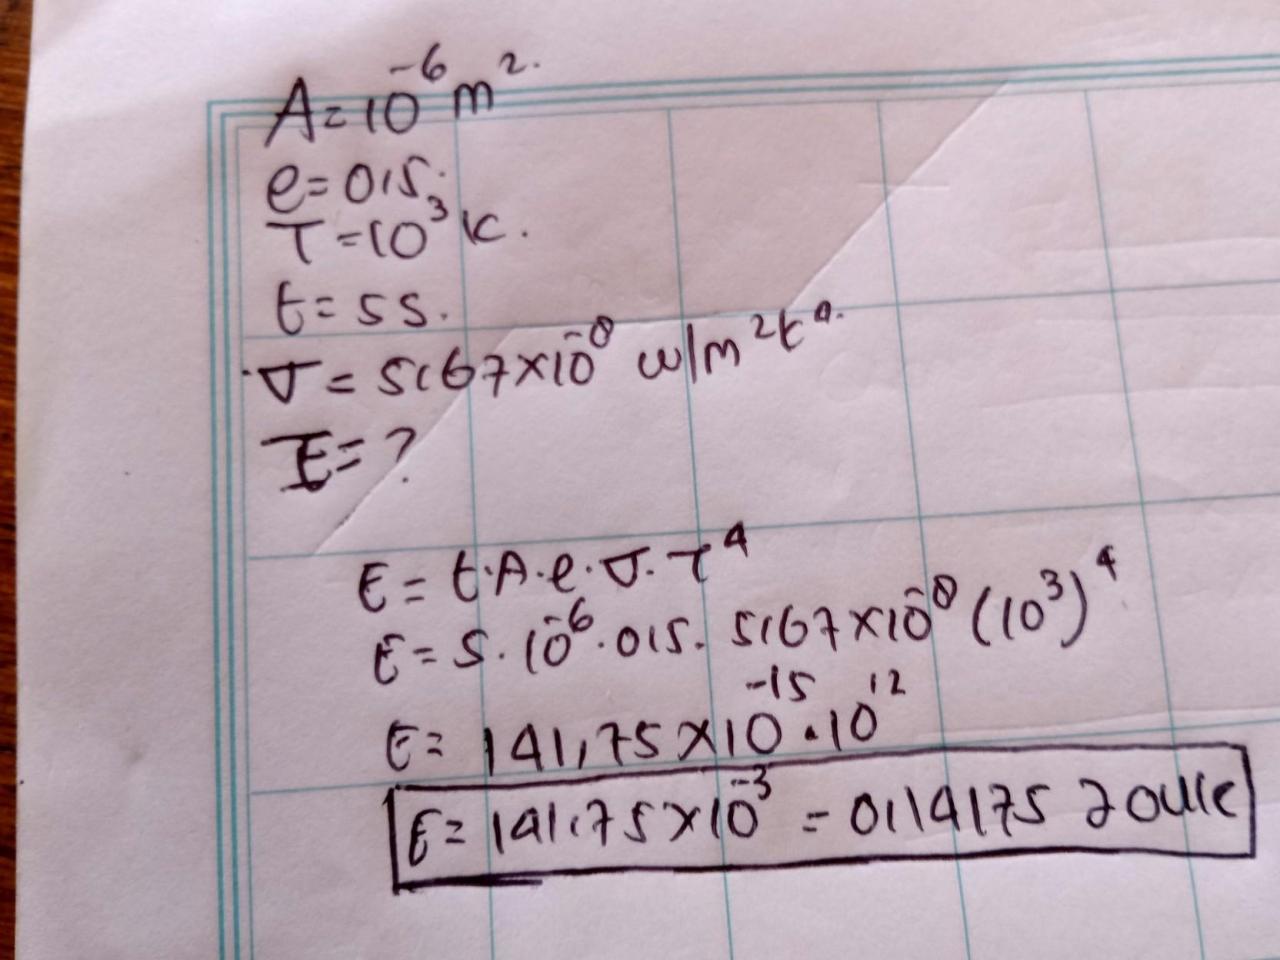 A=10⁻⁶ m².
e=0,5.
T=10³ K.
t=5s.
σ=5,67×10⁻⁸ w/m²k⁴.
E=?
E=t.A.e.σ.T⁴
E=5.10⁻⁶.0,5.5,67×10⁻⁸(10³)⁴
E=141,75×10⁻¹⁵.10¹²
E=141,75×10⁻³=0,14175 Joule